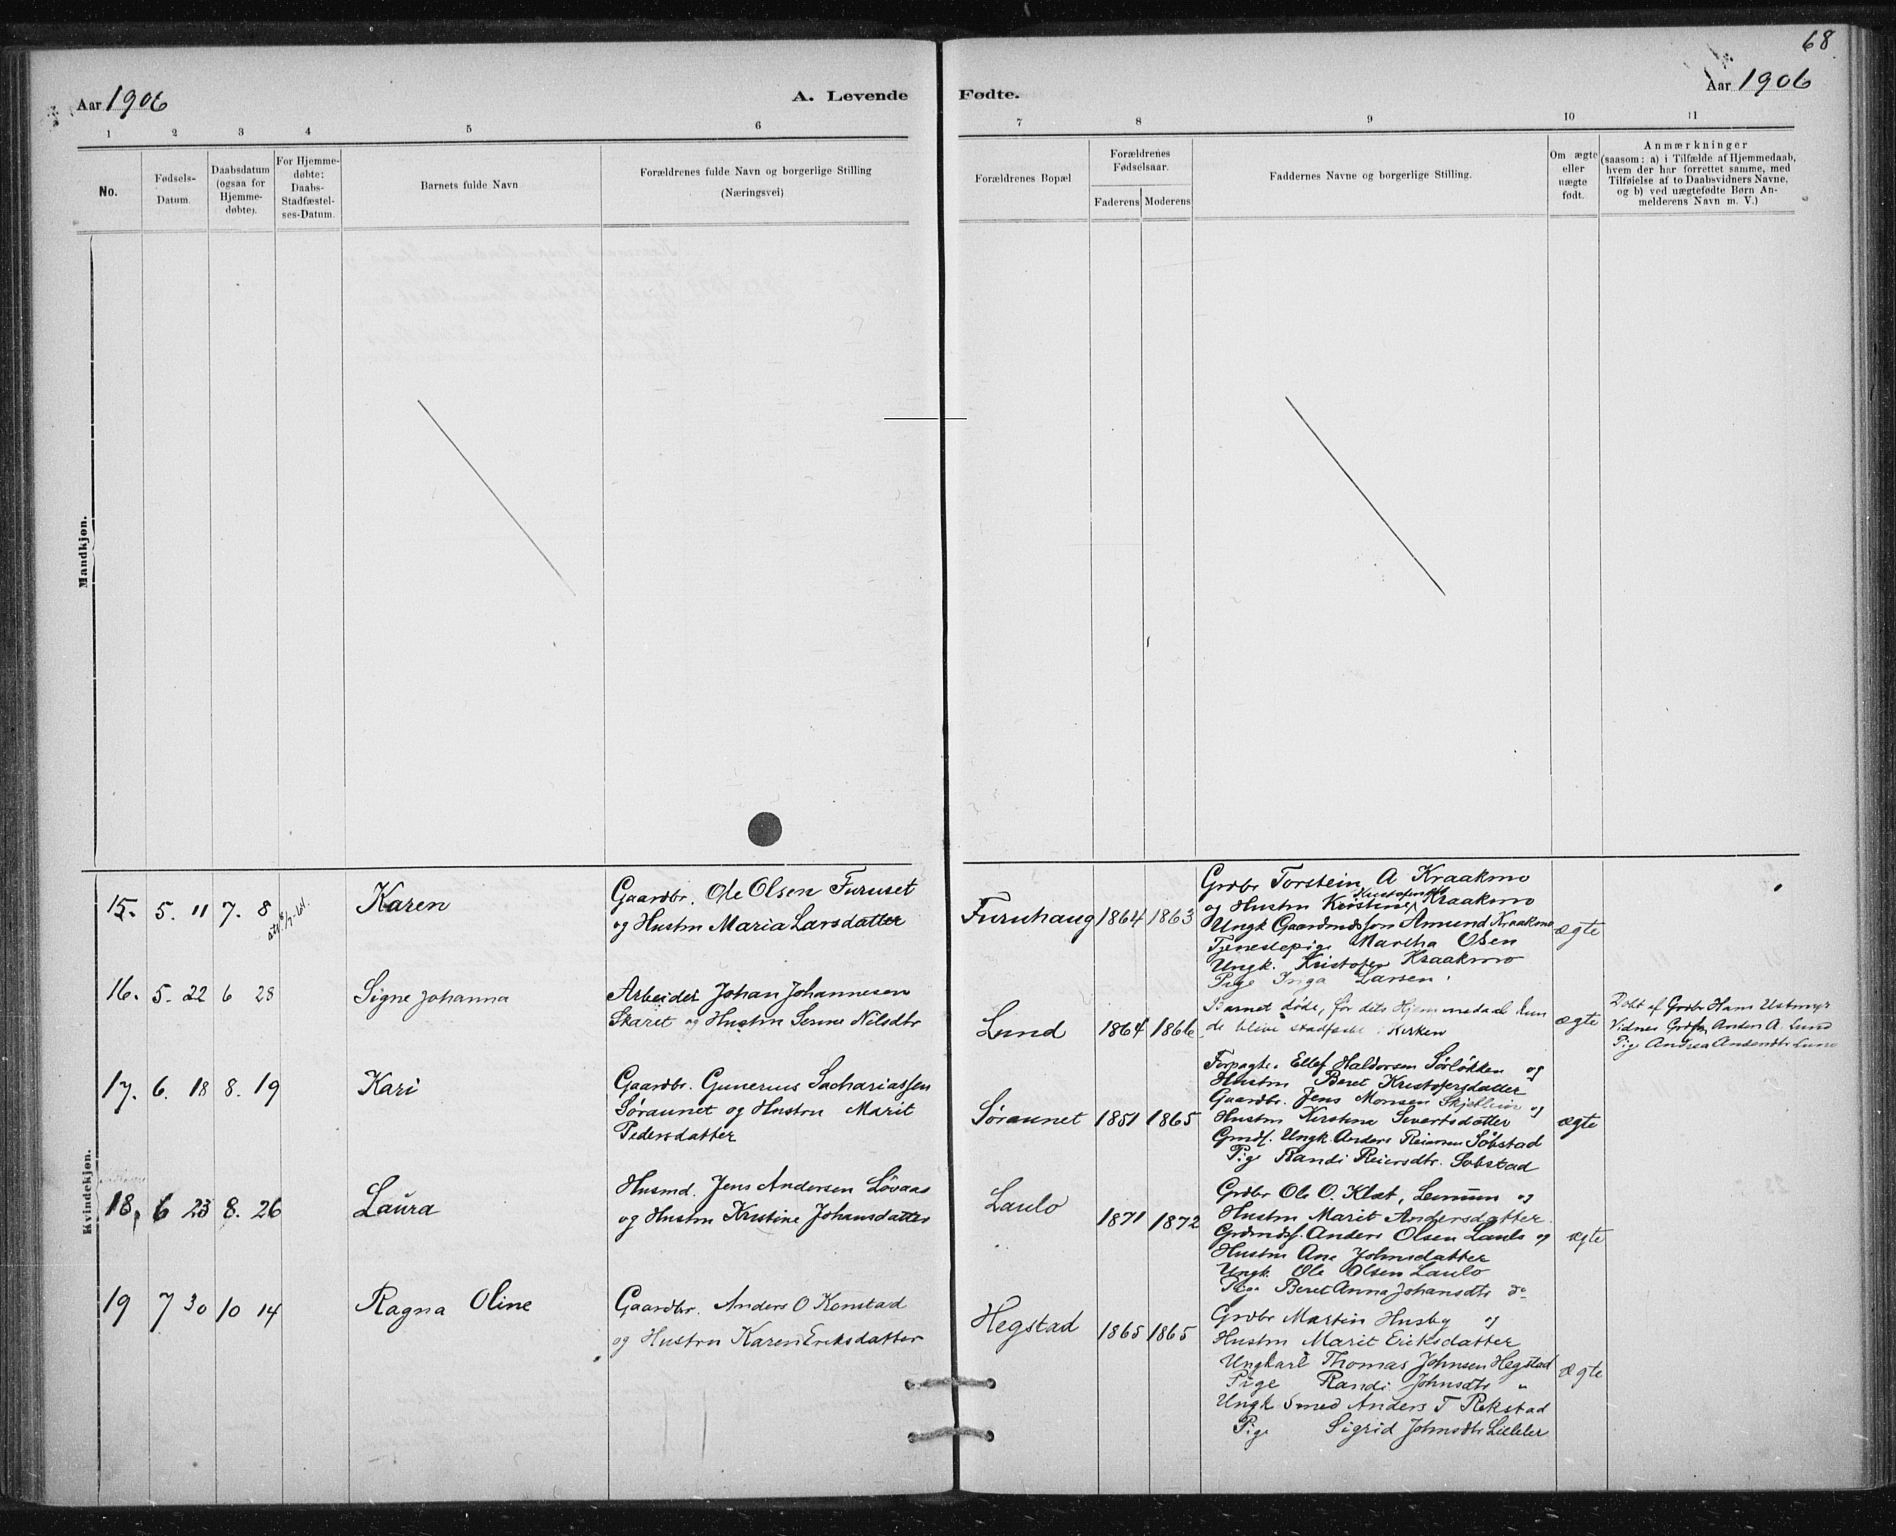 68
Aar 1906
A. Levende Fødte.
Aar 1906
1 2 3 4 5 6 7 8 9 10 11
No.
Fødsels-
Datum.
Daabsdatum
(ogsaa for
Hjemme-
døbte).
For Hjemme-
døbte:
Daabs-
Stadfæstel-
ses-Datum.
Barnets fulde Navn
Forældrenes fulde Navn og borgerlige Stilling
(Næringsvei)
Forældrenes Bopæl
Forældrenes
Fødselsaar.
Faderens Moderens
Faddernes Navne og borgerlige Stilling.
Om ægte
eller
uægte
født.
Anmærkninger
(saasom: a) i Tilfælde af Hjemmedaab,
hvem der har forrettet samme, med
Tilføielse af to Daabsvidners Navne,
og b) ved uægtefødte Børn An-
melderens Navn m. V.)
Mandkjøn.
Kvindekjøn.
15. 5. 11 7. 8
Karen
Gaardbr. Ole Olsen Furuset
og Hustru Maria Larsdatter
Furuhaug 1864 1863
Grdbr Torstein A Kraakmo
og Hustru Kirstine Kraakmo
Ungk Gaardmdssøn Amund Kraakmo
Tjenestepige Martha Olsen
Ungk. Kristofer Kraakmo
Pige Inga Larsen
ægte
16. 5. 22 6 28
Signe Johanna
Arbeider Johan Johannesen
Skaret og Hustru Serine Nilsdtr
Lund 1864 1866
Barnet døde, før dets Hjemmedaab kun
de blive stadfæstet i Kirken
ægte
Døbt af Grdbr Hans Ustmyr
Vidner Grdbr. Anders A. Lund
Pige Andrea Andersdtr Lund
17. 6. 18 8. 19
Kari
Gaardbr. Gunerius Sachariassen
Søraunet og Hustru Marit
Pedersdatter
Søraunet 1851 1865
Forpagter Ellef Haldorsen Sørløkken og
Hustru Beret Kristofersdatter
Gaardbr. Jens Monsen Skjetlein og
Hustru Kirstina Sivertsdatter
Gmdsf. Ungk. Anders Reiersen Søbstad
Pige Randi Reiersdtr. Søbstad
ægte
18. 6 23 8. 26
Laura
Husmd. Jens Andersen Løvaas
og Hustru Kristine Johansdatter
Laulo 1871 1872
Grdbr Ole O. Klæt, Leinum og
Hustru Marit Andersdatter
Grdmds. Anders Olsen Laulo og
Hustru Ane Johnsdatter
Ungk. Ole Olsen Laulo
Pige Beret Anna Johansdtr do
ægte
19 7 30 10 14
Ragna Oline
Gaardbr. Anders O Konstad
og Hustru Karen Eriksdatter
Hegstad 1865 1865
Grdbr Martin Husby og
Hustru Marit Eriksdatter
Ungkarl Thomas Johnsen Hegstad
Pige Randi Johnsdtr "
Ungk Smed Anders T Rekstad
Pige Sigrid Johnsdtr
ægte